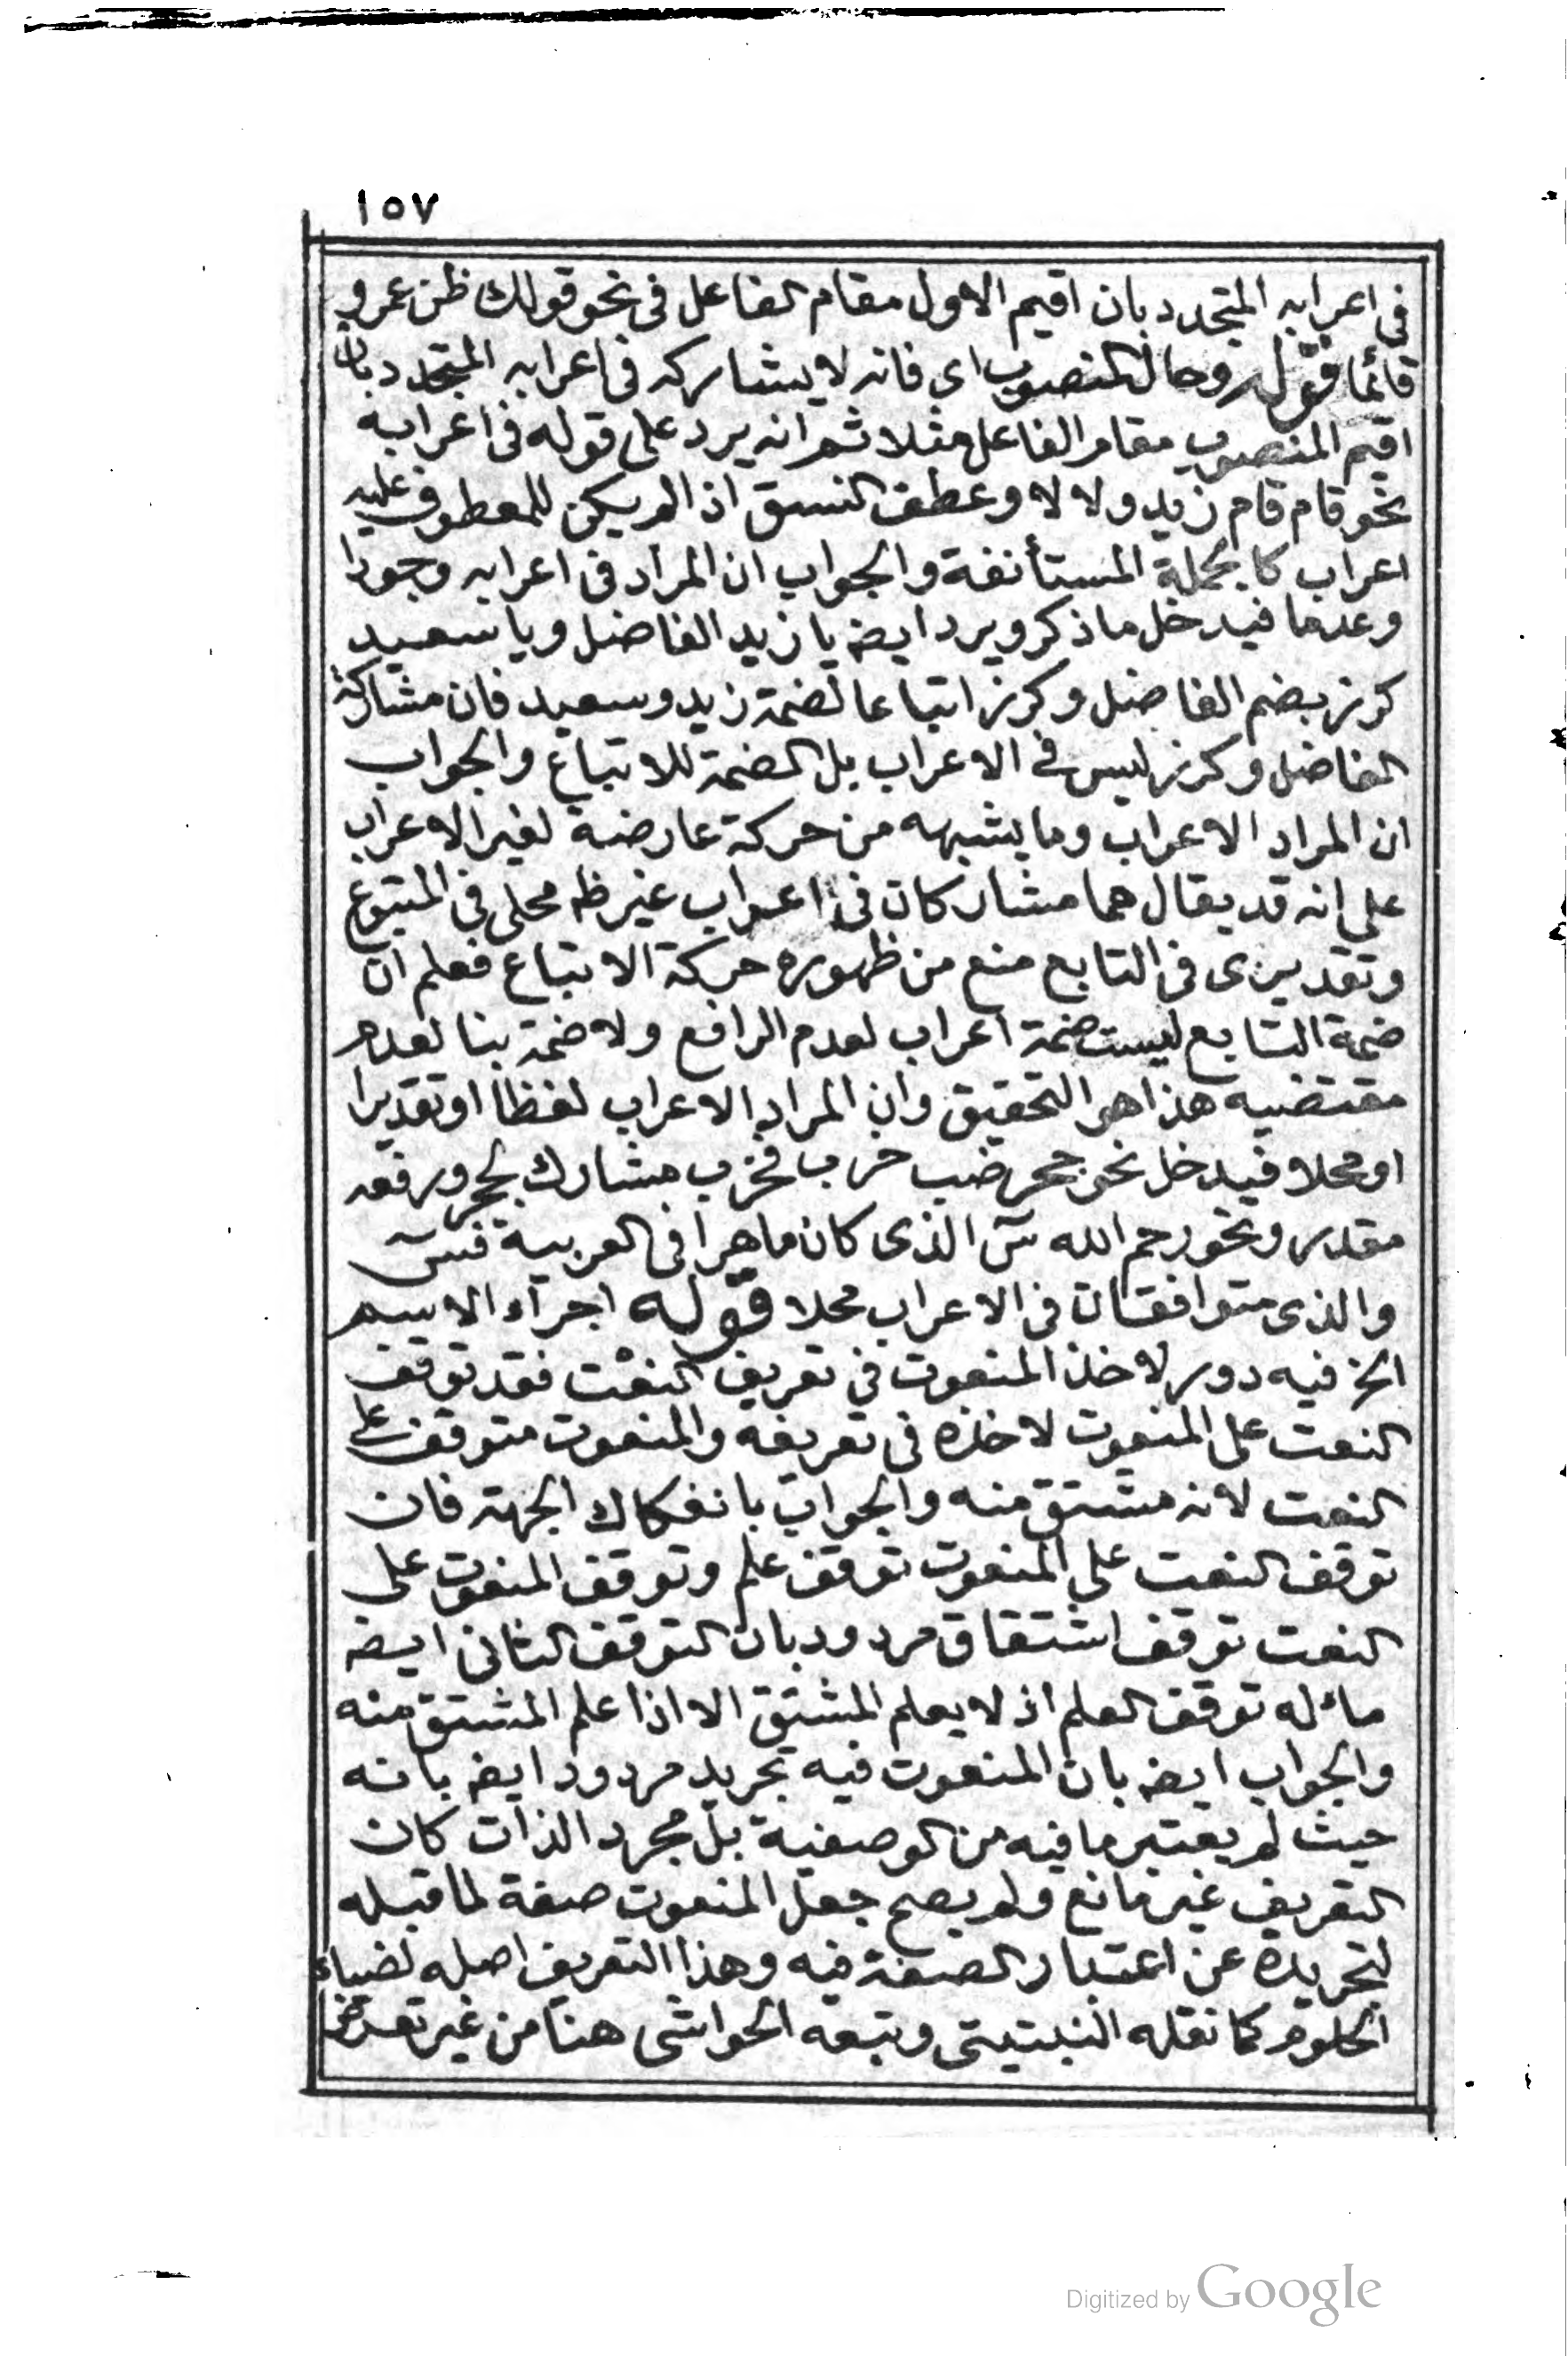 ١٥٧
في اعرابه المتجدد بان اقيم الاول مقام الفاعل في نحو قولك ظن عمرو
قائما قوله وحال المنصوب اي فانه لا يشاركه في اعرابه المتجدد بان
اقيم المنصوب مقام الفاعل مثلا ثم انه يرد على قوله في اعرابه
نحو قام قام زيد ولا لا وعطف النسق اذا لم يكن للمعطوف عليه
اعراب كالجملة المستأنفة والجواب ان المراد في اعرابه وجودا
وعدما فيدخل ما ذكر ويرد ايضه يا زيد الفاضل ويا سعيد
كرز بضم الفاضل وكرز اتباعا لضمة زيد وسعيد فان مشاركة
الفاضل وكرز ليس في الاعراب بل الضمة للاتباع والجواب
ان المراد الاعراب وما يشبهه من حركة عارضة لغير الاعراب
على انه قد يقال هما مشاركان في اعراب غير ظه محلى في المتبوع
وتقديرى في التابع منع من ظهوره حركة الاتباع فعلم ان
ضمة التابع ليست ضمة اعراب لعدم الرافع ولا ضمة بنا لعدم
مقتضيه هذا هو التحقيق وان المراد الاعراب لفظا او تقديرا
او محلا فيدخل نحو جحر ضب خرب فخرب مشارك لجحر ورفعه
مقدر ونحو رحم الله س الذى كان ماهرا في العربية فس
والذى متوافقان في الاعراب محلا قوله اجرآء الاسم
الخ فيه دور لاخذ المنعوت في تعريف النعت فقد توقف
النعت على المنعوت لاخذه في تعريفه والمنعوت متوقف على
النعت لانه مشتق منه والجواب بانفكاك الجهة فان
توقف النعت على المنعوت توقف علم وتوقف المنعوت على
النعت توقف اشتقاق مردود بان التوقف الثانى ايضه
مآله توقف العلم اذ لا يعلم المشتق الا اذا علم المشتق منه
والجواب ايضه بان المنعوت فيه تجريد مردود ايضه بانه
حيث لم يعتبر ما فيه من الوصفية بل مجرد الذات كان
التعريف غير مانع ولم يصح جعل المنعوت صفة لما قبله
لتجريده عن اعتبار الصفة فيه وهذا التعريف اصله لضياء
الحلوم كما نقله النبتيتى وتبعه الحواشى هنا من غير تعرض
Digitized by Google